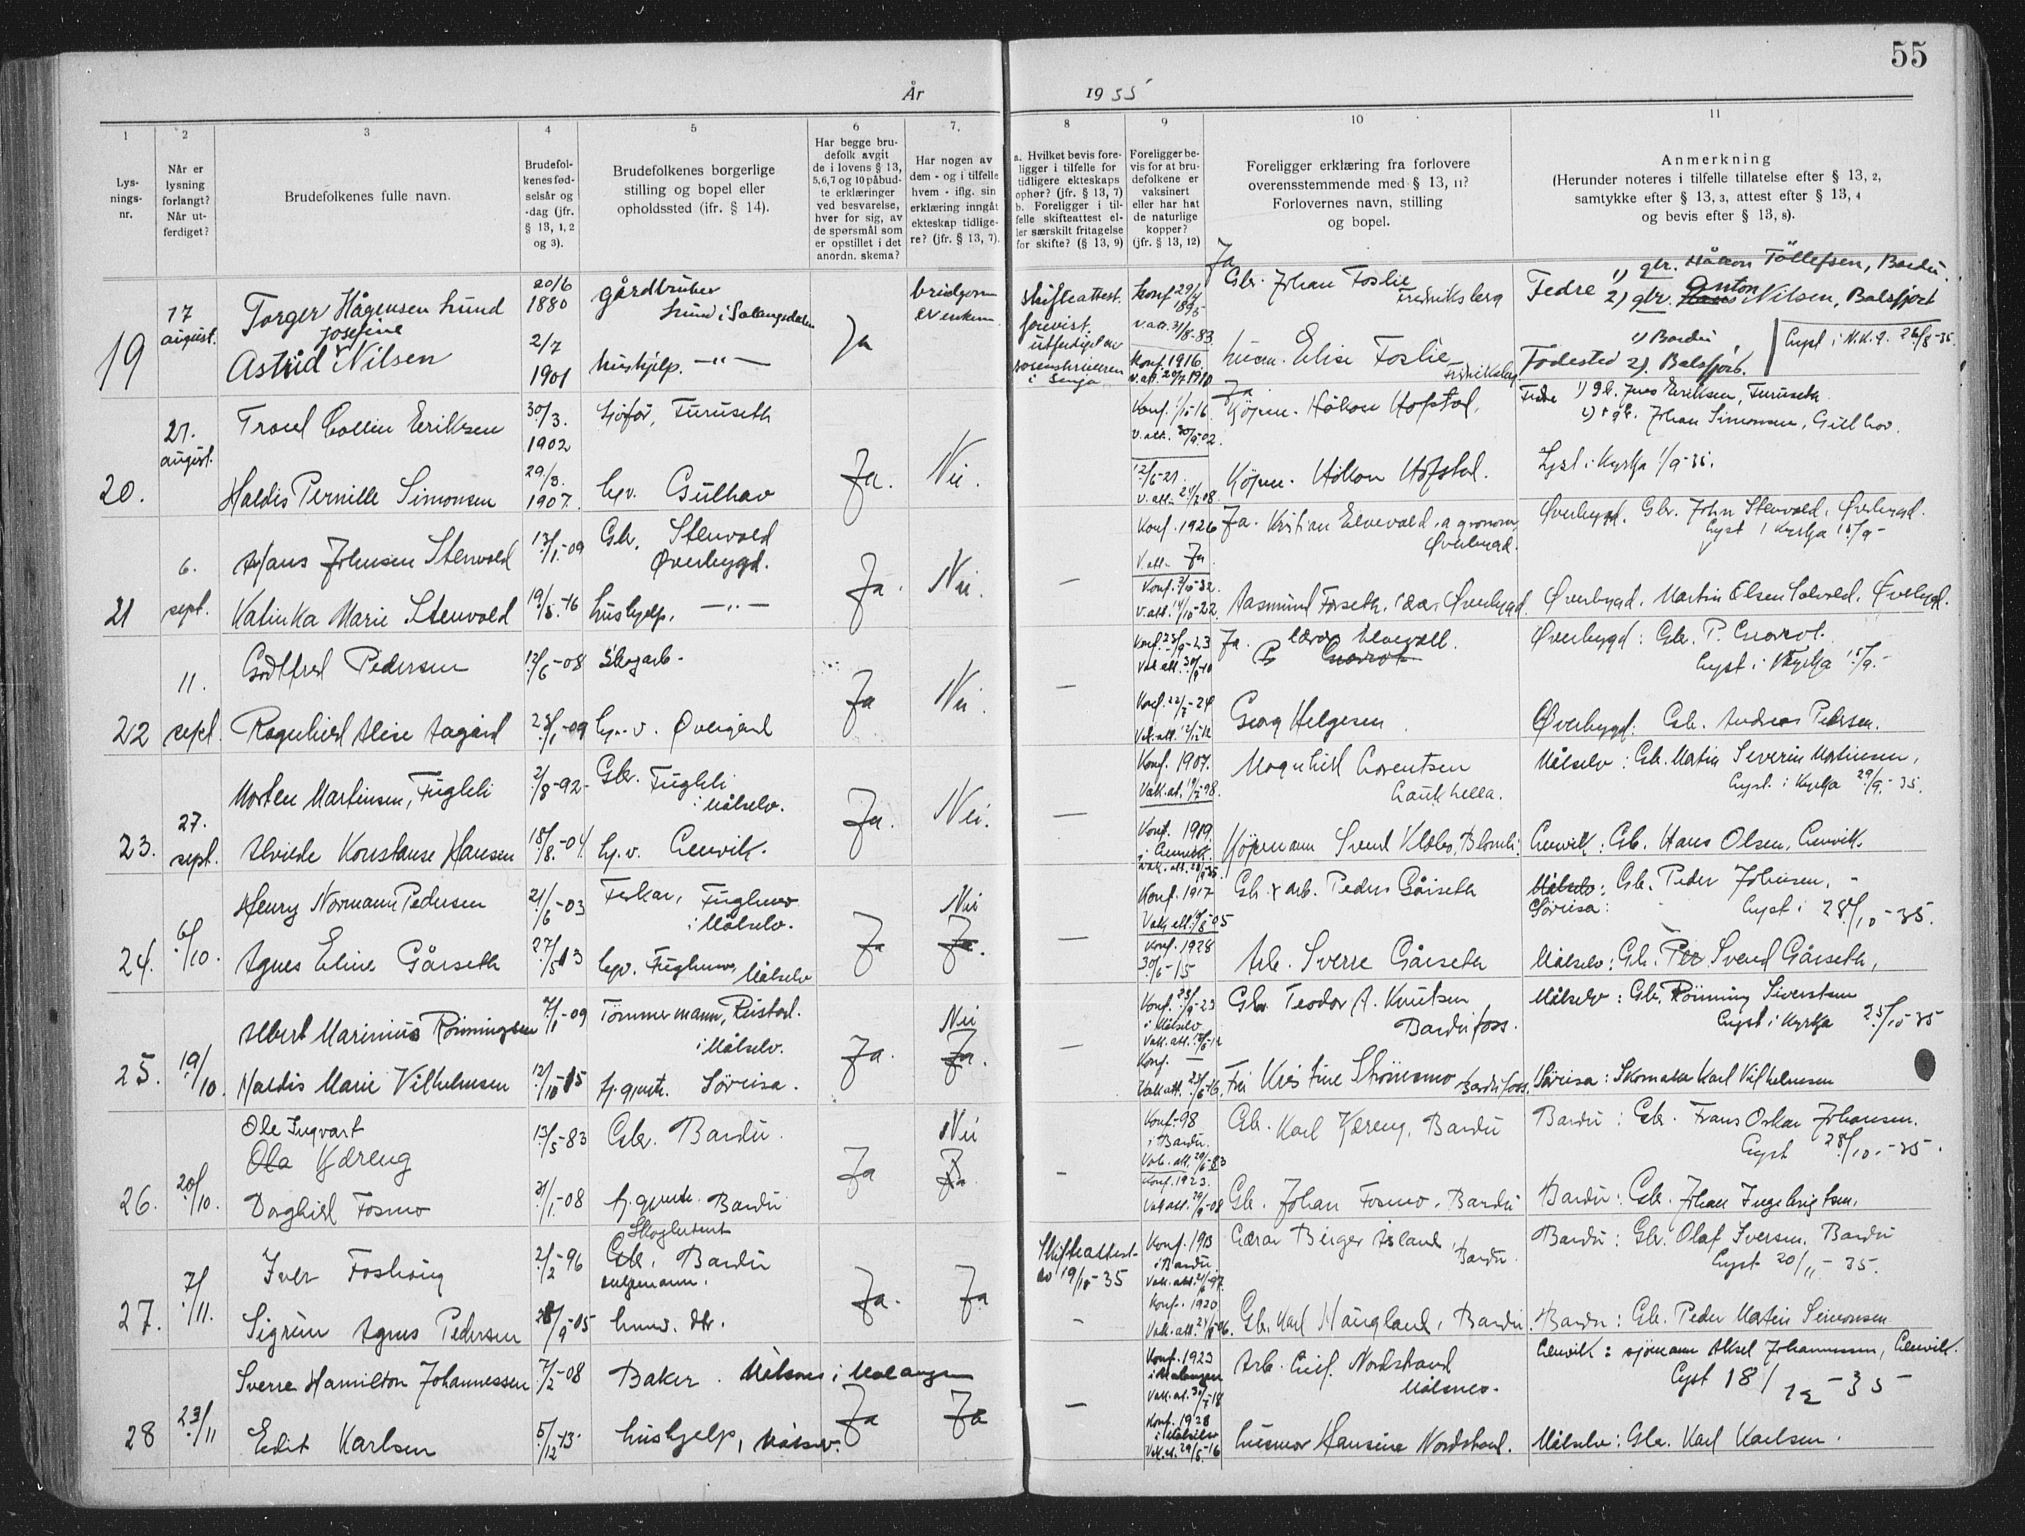 55
År 1935
1
2
3
4
5
6
7.
8
9
10
11
Lys-
nings-
nr.
Når er
lysning
forlangt?
Når ut-
ferdiget?
Brudefolkenes fulle navn.
Brudefol-
kenes fød-
selsår og
-dag (jfr.
§ 13, 1, 2
og 3).
Brudefolkenes borgerlige
stilling og bopel eller
opholdssted (ifr. § 14).
Har begge bru-
defolk avgit
de i lovens § 13,
5,6,7 og 10 påbud-
te erklæringer
ved besvarelse,
hver for sig, av
de spørsmål som
er opstillet i det
anordn. skema?
Har nogen av
dem - og i tilfelle
hvem - iflg. sin
erklæring inngåt
ekteskap tidlige-
re? (jfr. § 13, 7).
a. Hvilket bevis fore-
ligger i tilfelle for
tidligere ekteskaps
ophør? (jfr. § 13, 7)
b. Foreligger i til-
felle skifteattest el-
ler særskilt fritagelse
for skifte? (§ 13, 9)
Foreligger be-
vis for at bru-
defolkene er
vaksinert
eller har hat
de naturlige
kopper?
(jfr. § 13, 12)
Foreligger erklæring fra forlovere
overensstemmende med § 13, 11?
Forlovernes navn, stilling
og bopel.
Anmerkning
(Herunder noteres i tilfelle tillatelse efter § 13, 2,
samtykke efter § 13, 3, attest efter § 13, 4
og bevis efter § 13, 8).
19
17
august.
Torger Hågensen Lund
20/6
1880
gårdbruker
Lund i Salangsdalen
Ja
bridgom
enkem
skifteattest.
forevist.
utferdiget av
sorenskriveren
i Senja
Konf 29/9
1895
v.att. 31/8-83
Ja
Gbr. Johan Foslie
Fredriksberg
Fedre 1) gbr. Håkon Tollefsen, Bardu.
2) gbr. Anton Nilsen, Balsfjord
Josefine
Astrid Nilsen
2/7
1901
hushjelp. —"—
Konf. 1916
v.att. 20/7 1910
husm. Elise Foslie
Fredriksberg
1) Bardu
Fødested 2). Balsfjord.
Lyst i N.K.9. 26/8-35
20.
21.
august.
Trond Collin Eriksen
30/3.
1902
Sjåfør, Furuseth
Ja.
Nei.
Konf. 1/10-16
v.att. 30/9-02.
Ja
Kjøpm. Håkon Hofstad.
Fedre 1) gb. Jens Eriksen, Furuseth
2) gb. Johan Simonsen, Gullhav.
Haldis Pernille Simonsen
29/3.
1907.
hv. Gullhav
12/6-21.
v.att. 24/7-08.
Kjøpm. Håkon Hofstad.
Lyst i Kyrkja 1/9-35.
21
6.
sept.
Hans Johnsen Stenvold
13/1-09
Gbr. Stenvold
Øverbygd.
Ja.
Nei.
—
Konf. 1926
V.att. Ja
Ja. Kristian Elvevold, agronom,
Øverbygd.
Øverbygd. Gbr. John Stenvold, Øverbygd.
Lyst i Kyrkja 15/9-
Katinka Marie Stenvold
19/8.-16
hushjelp, —"—
Konf. 2/10-32.
v.att. 14/10-22
Aasmund Forseth, Øverbygd
Øverbygd. Martin Olsen Solvold, Øvebygd.
22
11.
sept.
Godtfred Pedersen
12/6-08
Skogarb.
Ja
Nei.
—
Konf. 23/9-23
Vak.att. 30/9-10
Ja. Elvevoll
Øverbygd: Gbr. P.
Lyst i Kyrkja 15/9.-
Ragnhild Alise Aagård
23/1-09
hv. Øvergård
Konf. 22/7-24
Georg Helgesen
Øverbygd: Gbr. Andreas Pedersen.
23.
27.
sept.
Morten Martinsen, Fugleli
2/8-92
Gbr. Fugleli
i Målselv.
Ja.
Nei.
—
Konf. 1907.
Vak.at. 19/7-98.
Magnhild Lorentsen
Laukhella.
Målselv: Gb. Martin Severin Martinsen,
Lyst. i Kyrkja 29/9-35.
Alvilde Konstanse Hansen
18/8.-04.
hv. Lenvik.
Konf. 1919.
i Lenvik.
Kjøpmann Svend Klæbo,
Lenvik: Gb. Hans Olsen, Lenvik.
24.
6/10.
Henry Normann Pedersen
21/6-03
Fisker, Fuglmo
i Målselv.
Ja
Nei
Ja.
—
Konf. 1917
Gb. x arb. Peder Gårseth
Målselv: Gb. Peder Johnsen,
Sørreisa: Lyst i 28/10-35.
Agnes Eline Gårseth
27/5 13
hv. Fuglmo, Målselv
Konf. 1928
30/6-15
Arb. Sverre Gårseth
Målselv: Gb. Per Svend Gårseth,
25.
19/10.
Albert Marinius Rønningsen
7/1-09
Tømmermann, Rustad.
i Målselv.
Ja.
Nei
Ja.
—
Konf. 23/9-23
i Målselv
Gb. Teodor A. Knutsen
Bardufoss.
Målselv: Gb. Rønning Sivertsen
Lyst i Kyrkja 25/10-35
Haldis Marie Vilhelmsen
12/10-15
hj.gjente. Sørreisa.
Konf. —
Vak.att. 23/6-16.
Frk Kristine Strømsmo Bardufoss.
Sørreisa: Skomaker Karl Vilhelmsen
26.
20/10.
Ole Ingvart
Ola Kjæreng
13/5-83
Gbr. Bardu.
Ja
Nei
Ja.
—
Konf.-98
i Bardu.
Vak.att. 29/6-83
Gb. Karl Kjæreng, Bardu
Bardu: Gb. Frans Oskar Johansen.
Lyst 28/10.-35.
Daghild Fosmo
31/1-08
hj.gjente. Bardu
Konf. 1923.
Vak.att. 29/9-08
Gb. Johan Fosmo, Bardu
Bardu: Gb. Johan Ingebrigtsen.
27.
7/11.
Iver Foshaug
2/2-96
Skogbetjent
Gbr. Bardu
ungmann.
Ja.
Ja
Skifteattest
av 19/10-35
Konf. 1913
i Bardu.
Vak.att. 21/6-97
Lærar Birger Island, Bardu.
Bardu: Gb. Olaf Iversen, Bardu
Lyst 20/11-35.
Sigrun Agnes Pedersen
28/9-05
husm. dtr.
—
Konf. 1920
Vak.att. 21/9-06.
Gb. Karl Haugland, Bardu.
Bardu: Gb. Peder Martin Simonsen
28
23/11
Sverre Hamilton Johannessen
7/2-08
Baker. Målsnes i Malangen
Ja
Ja
—
Konf. 1923
i Malangen
Vak.at. 30/7-18
Arb. Leif Nordstrand
Målsnes.
Lenvik: sjømann Aksel Johannessen, Lenvik.
Lyst 18/12-35
Edit Karlsen
5/12-13.
hushjelp, Målselv.
Konf. 1928
i Målselv
Vak.at. 29/5-16
husmor Hansine Nordstrand.
Målselv: Gbr. Karl Karlsen.